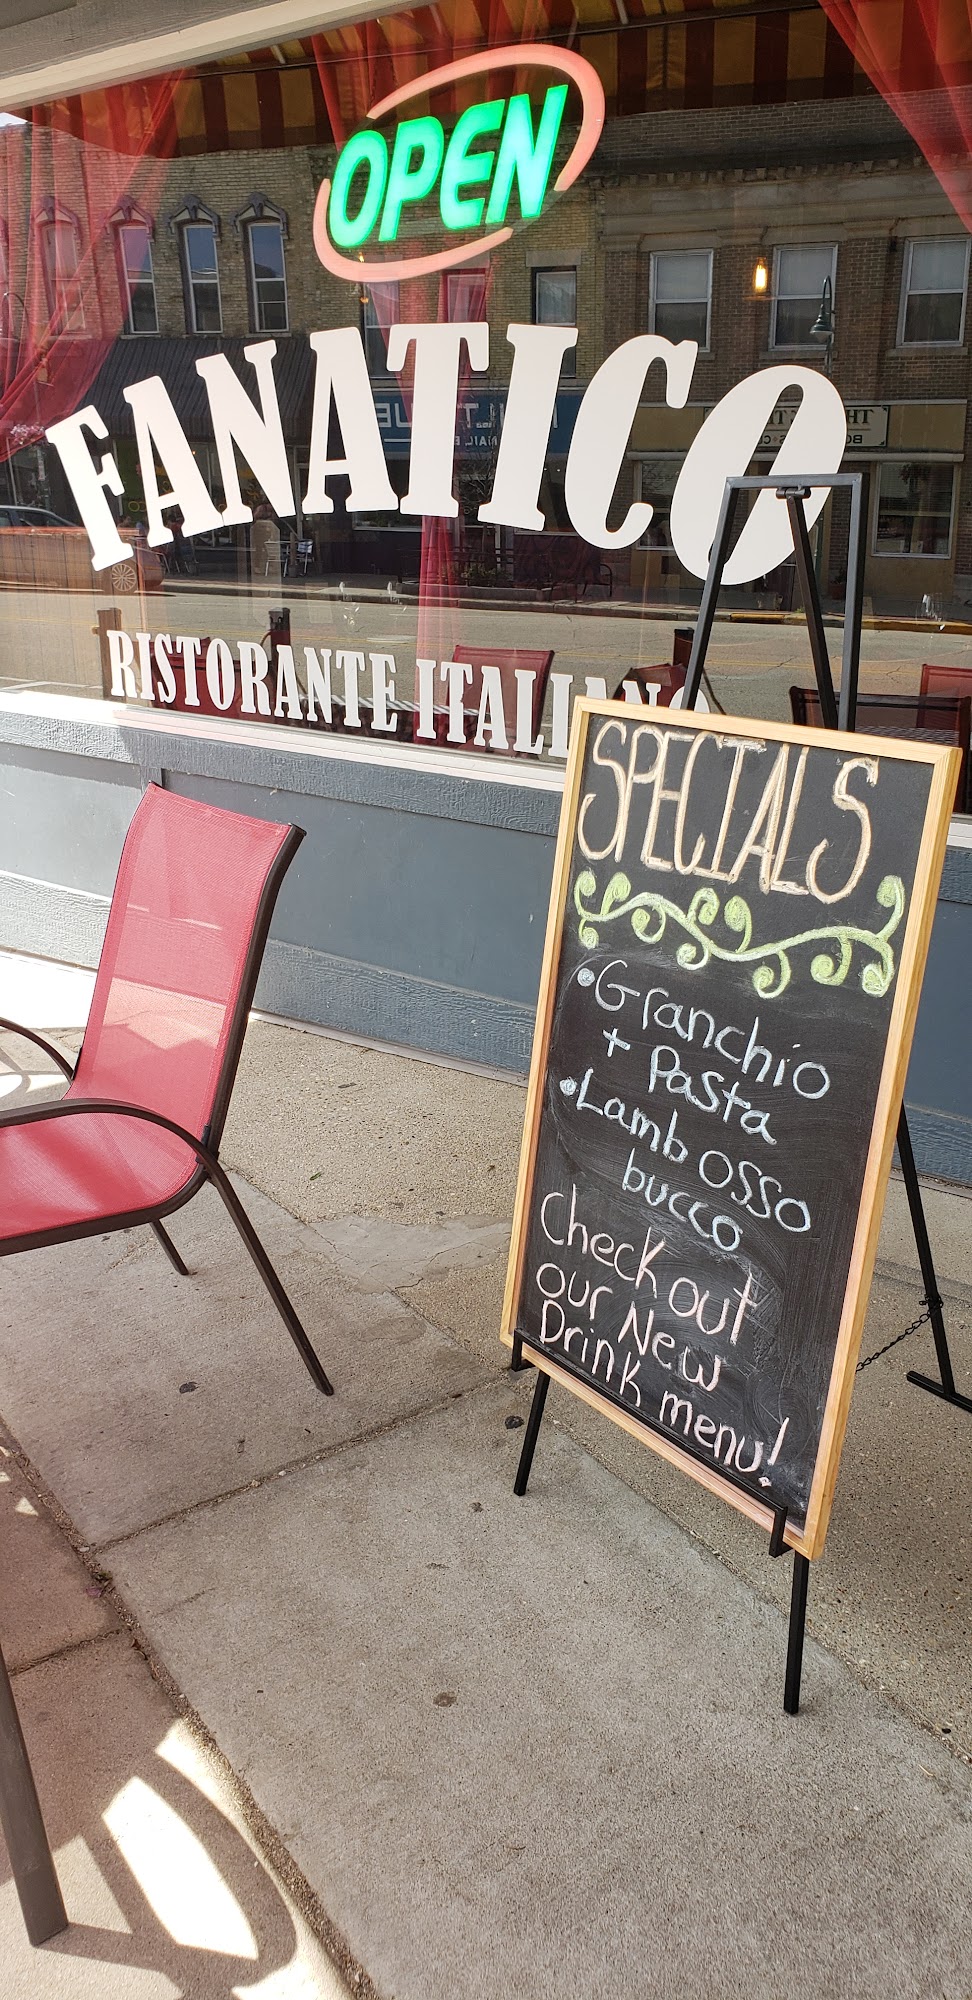 OPEN
FANATICO
RISTORANTE ITALIANO
SPECIALS
•Granchio
+ Pasta
•Lamb Osso
bucco
Check out
our New
Drink menu!